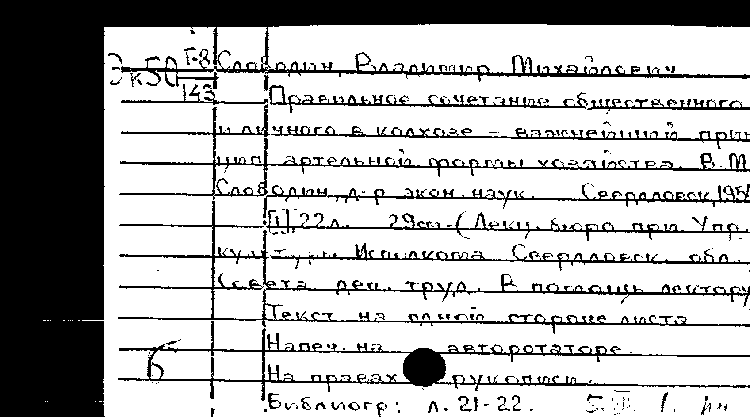 Эк50 Г-8/143 Слободин, Владимир Михайлович
Правильное сочетание общественного
и личного в колхозе - важнейший прин
цип артельной формы хозяйства. В.М.
Слободин, д-р экон. наук. Свердловск, 195
[1], 22л. 29см. (Лекц. бюро при Упр.
культуры Исполкома Свердловск. обл.
Совета деп. труд. В помощь лектору
Текст на одной стороне листа
Напеч. на авторотаторе.
б На правах рукописи.
Библиогр: л. 21-22.